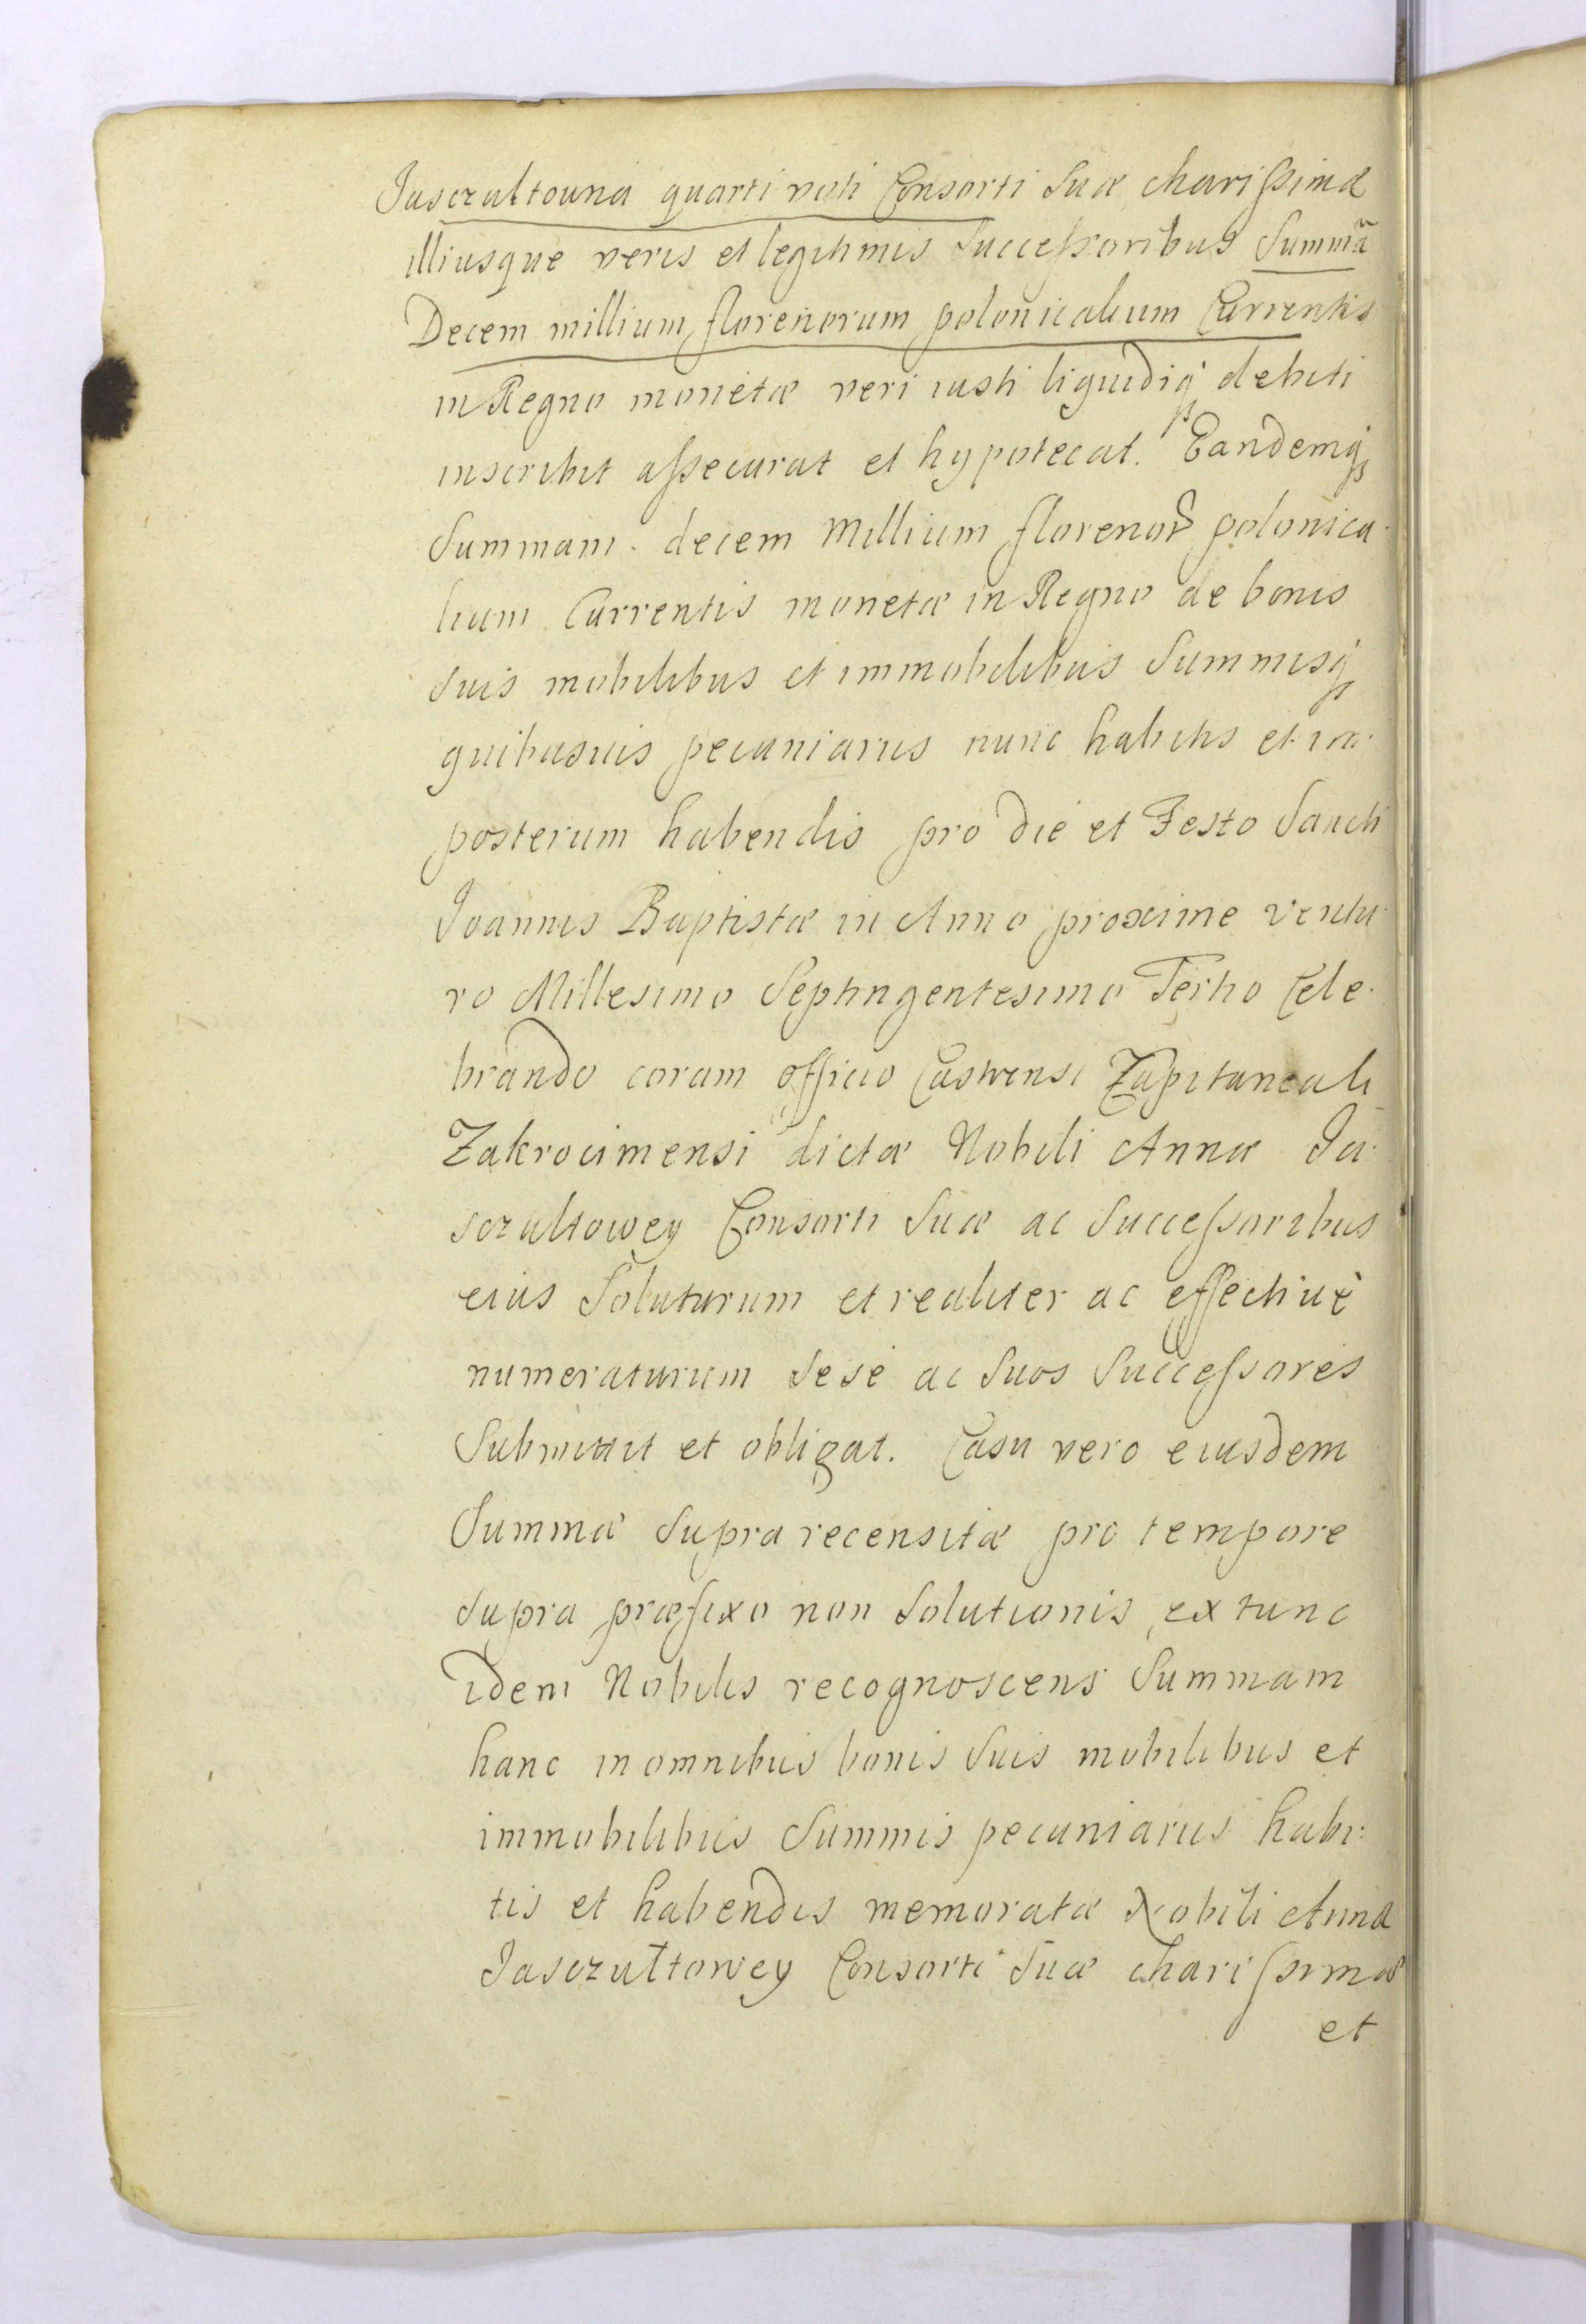 Jasczultouna quarti voti Consorti Suæ charissimæ
illiusque veris et legitimis Successoribus Summã
Decem millium florenorum polonicalium Currentis
in Regno monetæ veri iusti liquidiq; debiti
inscribit assecurat et hypotecat. Eandemq;
Summam decem Millium florenor̃ polonica-
lium Currentis monetæ in Regno de bonis
suis mobilibus et immobilibus Summisq;
quibusuis pecuniarijs nunc habitis et in
posterum habendis pro die et Festo Sancti
Joannis Baptistæ in Anno proxime ventu-
ro Millesimo Septingentesimo Tertio Cele-
brando coram officio Castrensi Capitaneali
Zakrocimensi dictæ Nobili Annæ Ja-
sczultowey Consorti Suæ ac Successoribus
eius Soluturum et realiter ac effectiuè
numeraturum Sese ac Suos Successores
Submittit et obligat. Casu vero eiusdem
Summæ Supra recensitæ pro tempore
supra præfixo non Solutionis, ex tunc
idem Nobilis recognoscens Summam
hanc in omnibus bonis Suis mobilibus et
immobilibus Summis pecuniarijs habi-
tis et habendis memoratæ Nobili Annæ
Jasczułtowey Consorti Suæ charissimæ
et